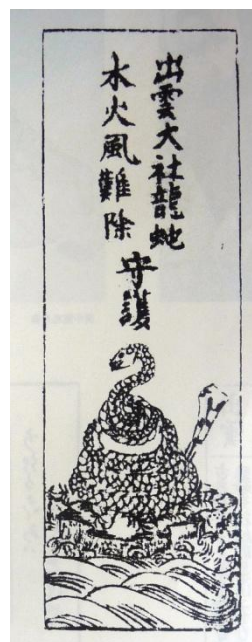 出雲大社龍蛇
水火風難除
守護